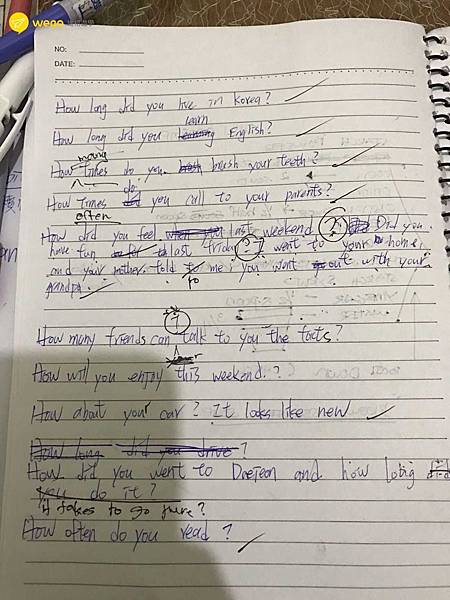 wego
NO:
DATE:
How long did you live in Korea?
learn
How long did you learning English?
many
How times do you brush your teeth?
do
How times did you call to your parents?
often
How did you feel last weekend? Did you
have fun last friday? I went to your home,
and your mother told to me you went out with your
to
grandpa.
How many friends can talk to you the facts?
How will you enjoy this weekend?
How about your car? It looks like new
How long did you drive?
How did you went to Daejeon and how long did
you do it?
it takes to go there?
How often do you read?